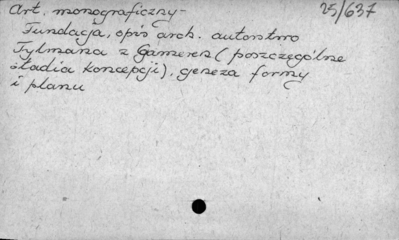 Art. monograficzny -
25/637
Fundacja, opis arch. autorstwo
Tylmana z Gameren (poszczególne
stadia koncepcji), geneza formy
i planu